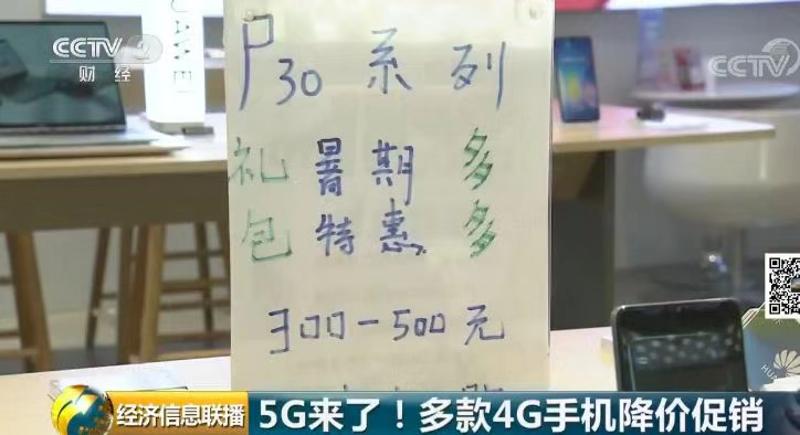 CCTV 2
财经
CCTV
HUAWEI
P30系列
礼 暑期 多
包 特惠 多
300-500元
经济信息联播
5G来了！多款4G手机降价促销